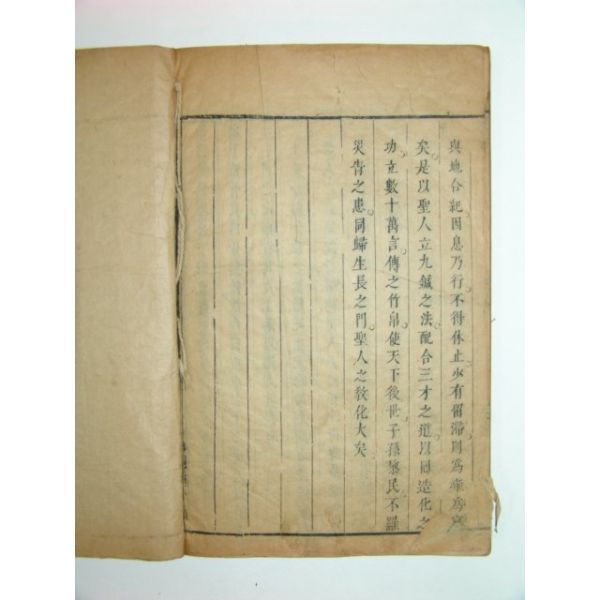 與地合紀因息乃行不得休止少有留滯則為瘴為癘
矣是以聖人立九鍼之法配合三才之道以同造化之
功立數十萬言傳之竹帛使天下後世子孫黎民不罹
災眚之患同歸生長之門聖人之敎化大矣